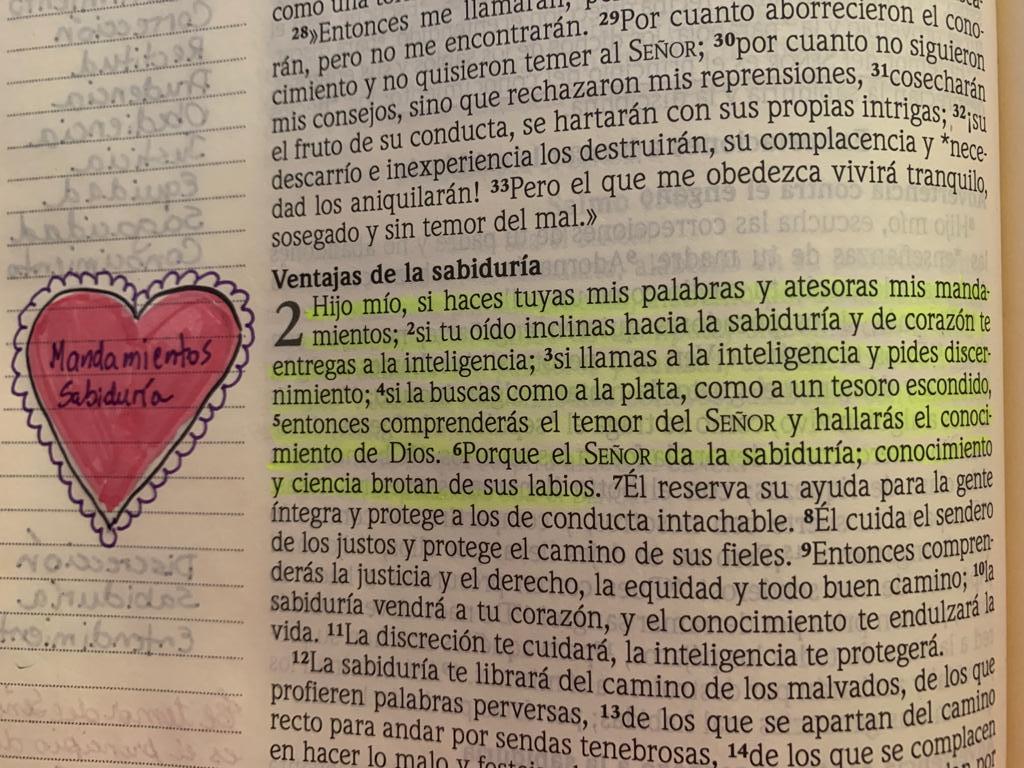 como una
28»Entonces me llamarán,
rán, pero no me encontrarán. 29Por cuanto aborrecieron el cono-
cimiento y no quisieron temer al SEÑOR; 30por cuanto no siguieron
mis consejos, sino que rechazaron mis reprensiones, 31cosecharán
el fruto de su conducta, se hartarán con sus propias intrigas; 32¡su
descarrío e inexperiencia los destruirán, su complacencia y *nece-
dad los aniquilarán! 33Pero el que me obedezca vivirá tranquilo,
sosegado y sin temor del mal.»
Ventajas de la sabiduría
2 Hijo mío, si haces tuyas mis palabras y atesoras mis manda-
mientos; 2si tu oído inclinas hacia la sabiduría y de corazón te
entregas a la inteligencia; 3si llamas a la inteligencia y pides discer-
nimiento; 4si la buscas como a la plata, como a un tesoro escondido,
5entonces comprenderás el temor del SEÑOR y hallarás el conoci-
miento de Dios. 6Porque el SEÑOR da la sabiduría; conocimiento
y ciencia brotan de sus labios. 7Él reserva su ayuda para la gente
íntegra y protege a los de conducta intachable. 8Él cuida el sendero
de los justos y protege el camino de sus fieles. 9Entonces compren-
derás la justicia y el derecho, la equidad y todo buen camino; 10la
sabiduría vendrá a tu corazón, y el conocimiento te endulzará la
vida. 11La discreción te cuidará, la inteligencia te protegerá.
12La sabiduría te librará del camino de los malvados, de los que
profieren palabras perversas, 13de los que se apartan del camino
recto para andar por sendas tenebrosas, 14de los que se complacen
en hacer lo malo y
Mandamientos
Sabiduría